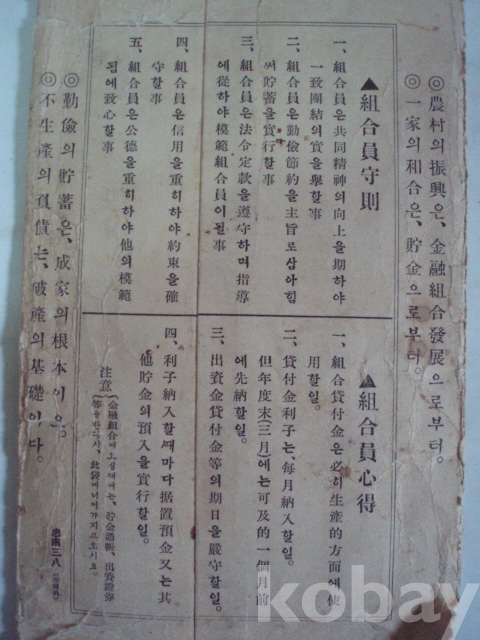 ◎農村의振興은、金融組合發展으로부터。
◎一家의和合은、貯金으로부터。
▲組合員守則
一、組合員은共同精神의向上을期하야
一致團結의實을擧할事
二、組合員은勤儉節約을主旨로삼아힘
써貯蓄을實行할事
三、組合員은法令定款을遵守하며指導
에從하야模範組合員이될事
四、組合員은信用을重히하야約束을確
守할事
五、組合員은公德을重히하야他의模範
됨에致心할事
▲組合員心得
一、組合貸付金은必히生産的方面에使
用할일。
二、貸付金利子는、每月納入할일。
但年度末(三月)에는可及的一個月前
에先納할일。
三、出資金貸付金等의期日을嚴守할일。
四、利子納入할때마다据置預金又는其
他貯金의預入을實行할일。
注意
金融組合에오실때에는、貯金通帳、出資證券
等을반다시、此袋에너어가지고오시요。
◎勤儉의貯蓄은、成家의根本이요。
◎不生産의負債는、破産의基礎이다。
忠南三八
kobay